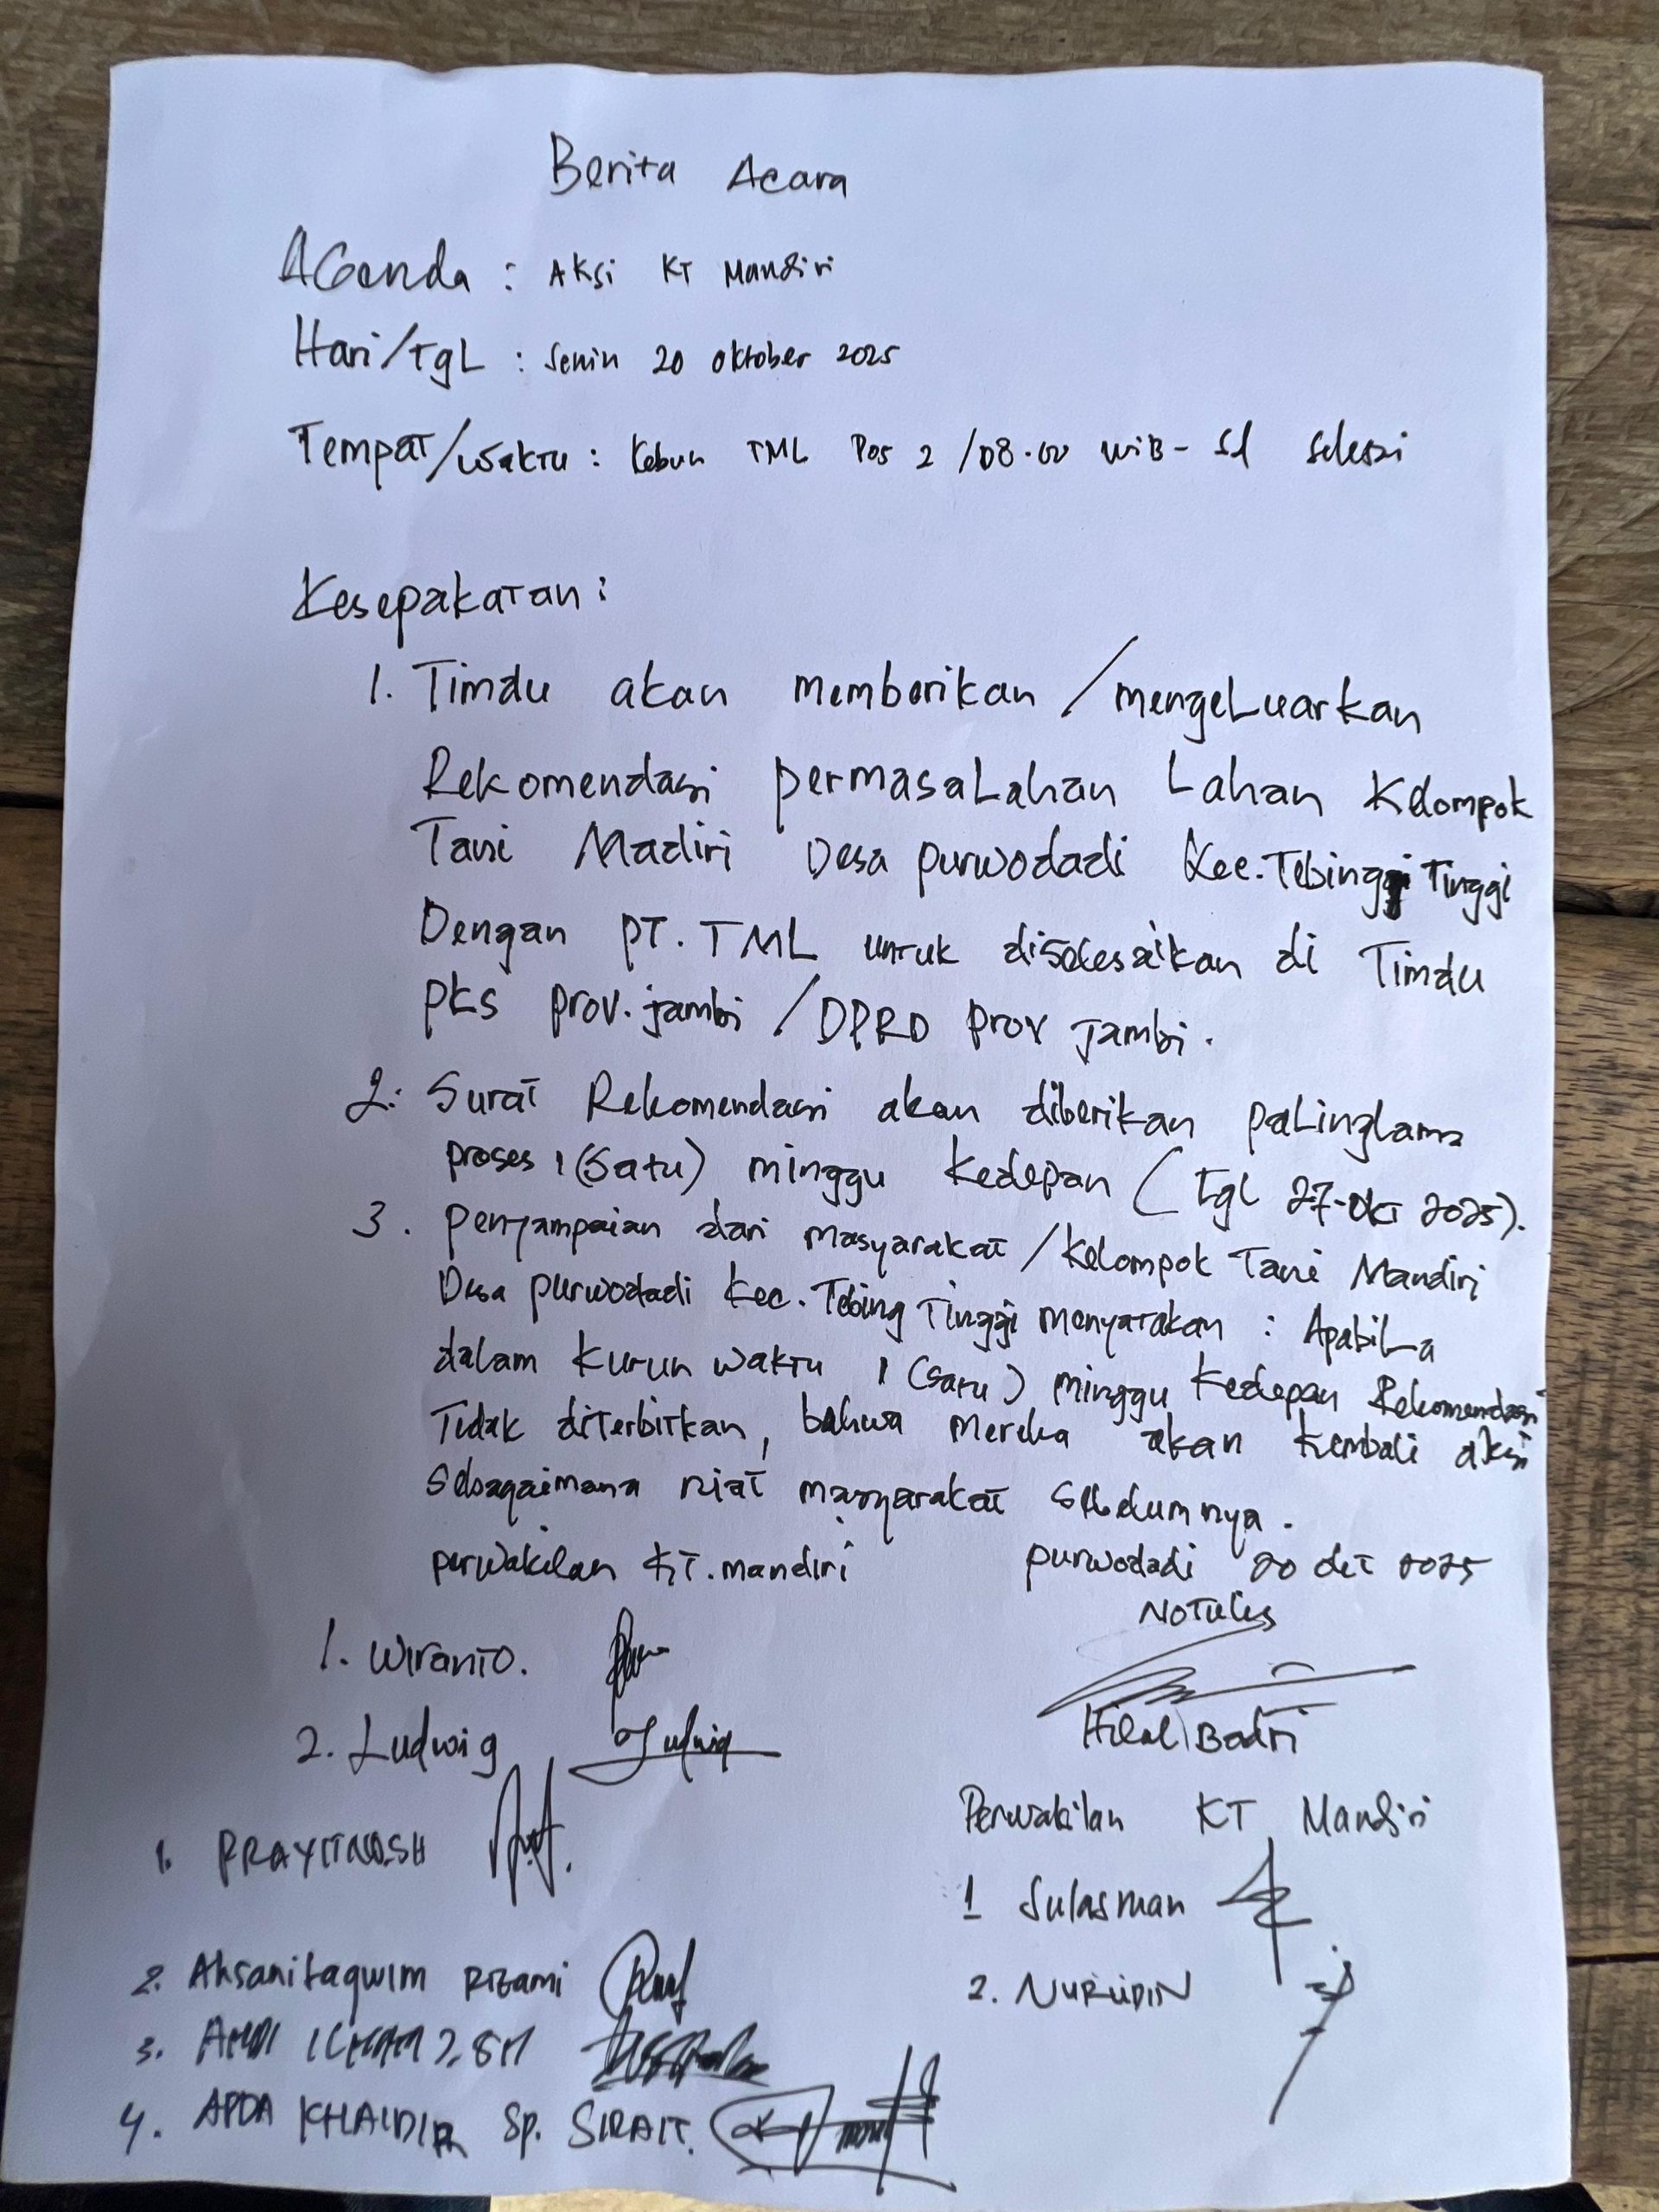 Berita Acara
AGenda : Aksi KT Mandiri
Hari/TgL : Senin 20 oktober 2025
Tempat/waktu : Kebun TML Pos 2 /08.00 WIB - sd selesai
Kesepakatan :
1. Timdu akan memberikan / mengeLuarkan
Rekomendasi permasaLahan Lahan Kelompok
Tani Madiri Desa purwodadi Kec. Tebing Tinggi
Dengan PT. TML untuk diselesaikan di Timdu
PKS prov. jambi / DPRD prov jambi.
2. Surat Rekomendasi akan diberikan paLinglama
proses 1 (satu) minggu kedepan (Tgl 27-Okt 2025).
3. penyampaian dari masyarakat / Kelompok Tani Mandiri
Desa purwodadi Kec. Tebing Tinggi menyatakan : ApabiLa
dalam kurun waktu 1 (satu) minggu kedepan Rekomendasi
Tidak diterbitkan, bahwa mereka akan kembali aksi
sebagaimana niat masyarakat sebelumnya.
perwakilan KT. mandiri
purwodadi 20 okt 2025
NOTULis
1. WIRANTO.
2. Ludwig Ludwig
Hilal Badri
1. PRAYITNO.SH
2. Ahsanitaqwim Rizami
3. SH
4. APDA KHAIDIR Sp. SIRAIT.
Perwakilan KT Mandiri
1 Sulasman
2. NURUDIN